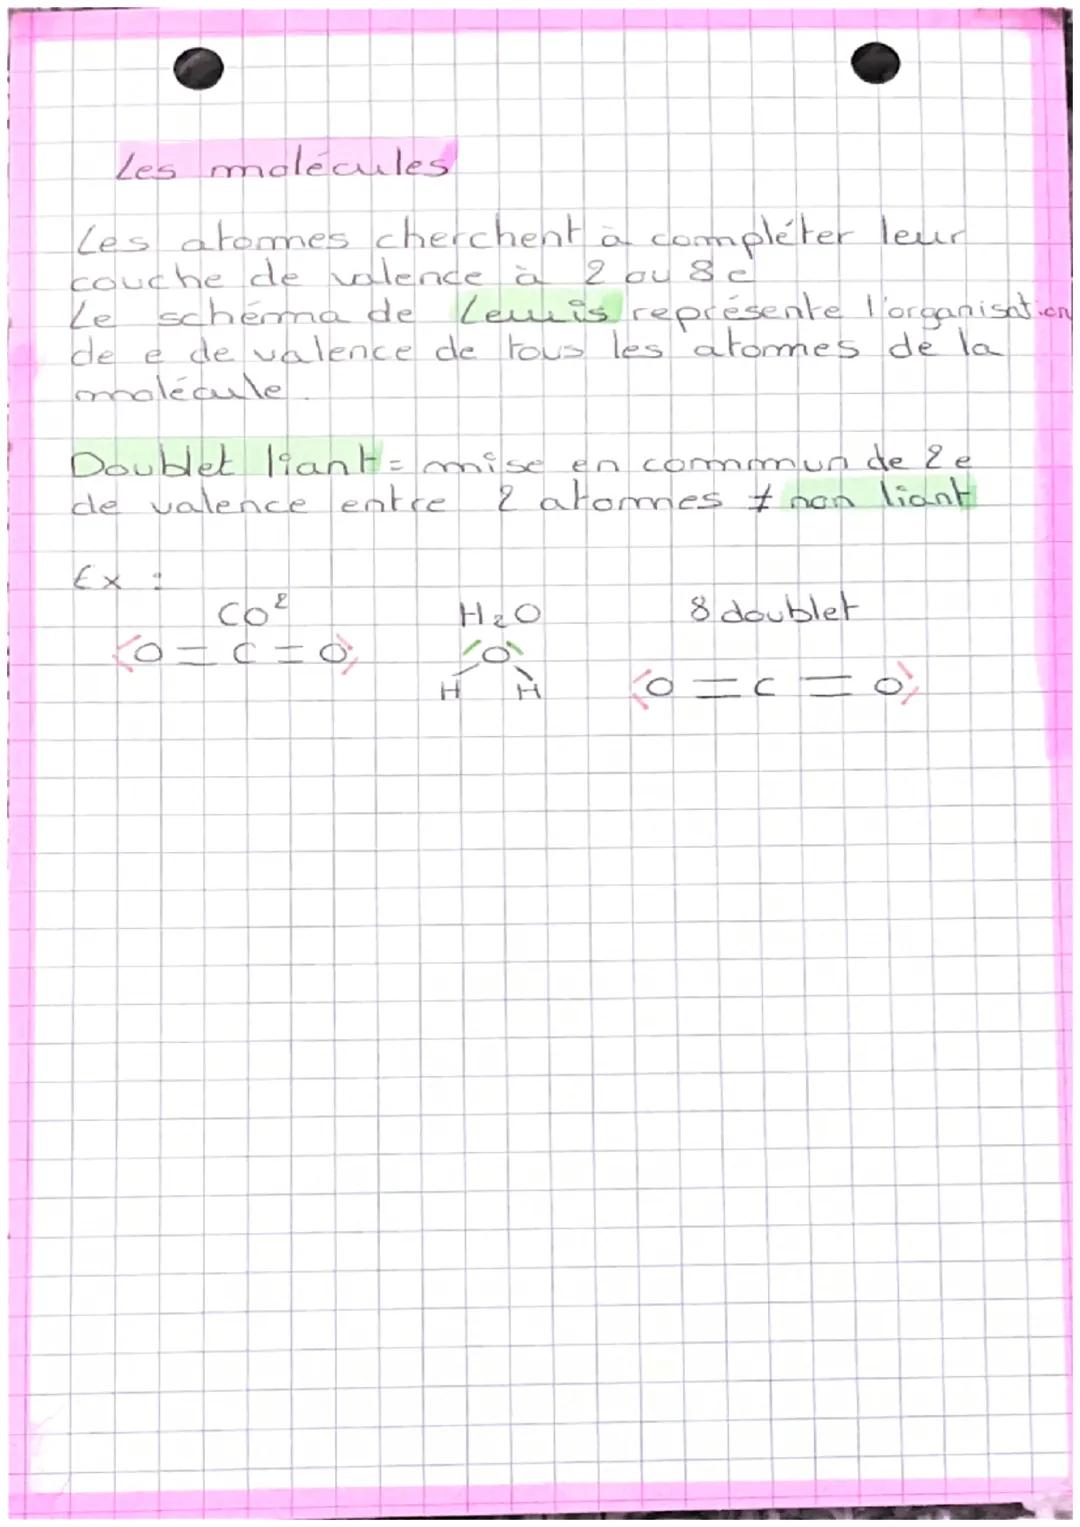 Les molécules
Les atomes cherchent à compléter leur
couche de valence à 2 ou 8 e
Le schéma de Lewis représente l'organisation
de e de valence de tous les atomes de la
molécule.
Doublet liant = mise en commun de 2 e
de valence entre 2 atomes ≠ non liant
Ex :
CO² H₂O 8 doublet
O = C = O O
H H O = C = O